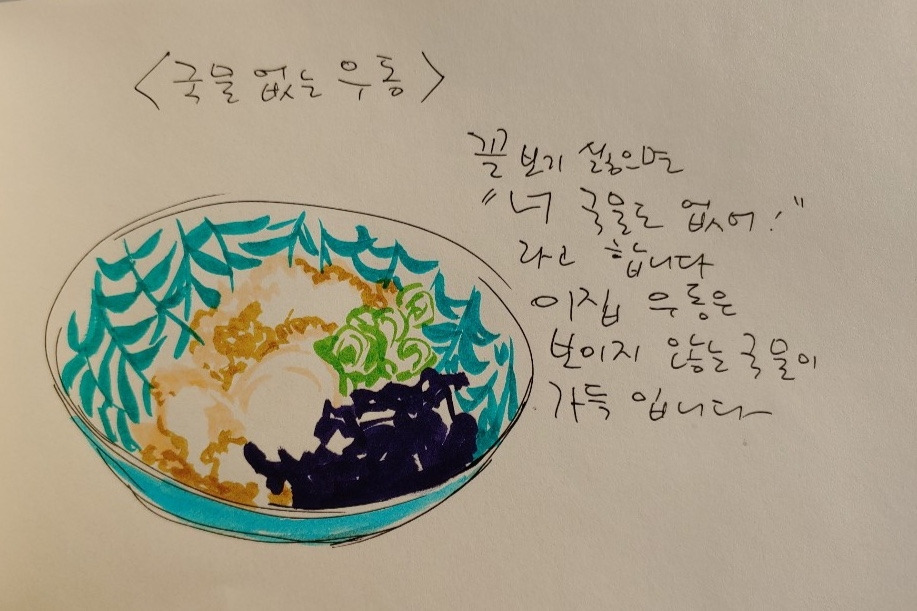 <국물 없는 우동>
꼴 보기 싫으면
"너 국물도 없어!"
라고 합니다
이집 우동은
보이지 않는 국물이
가득 입니다